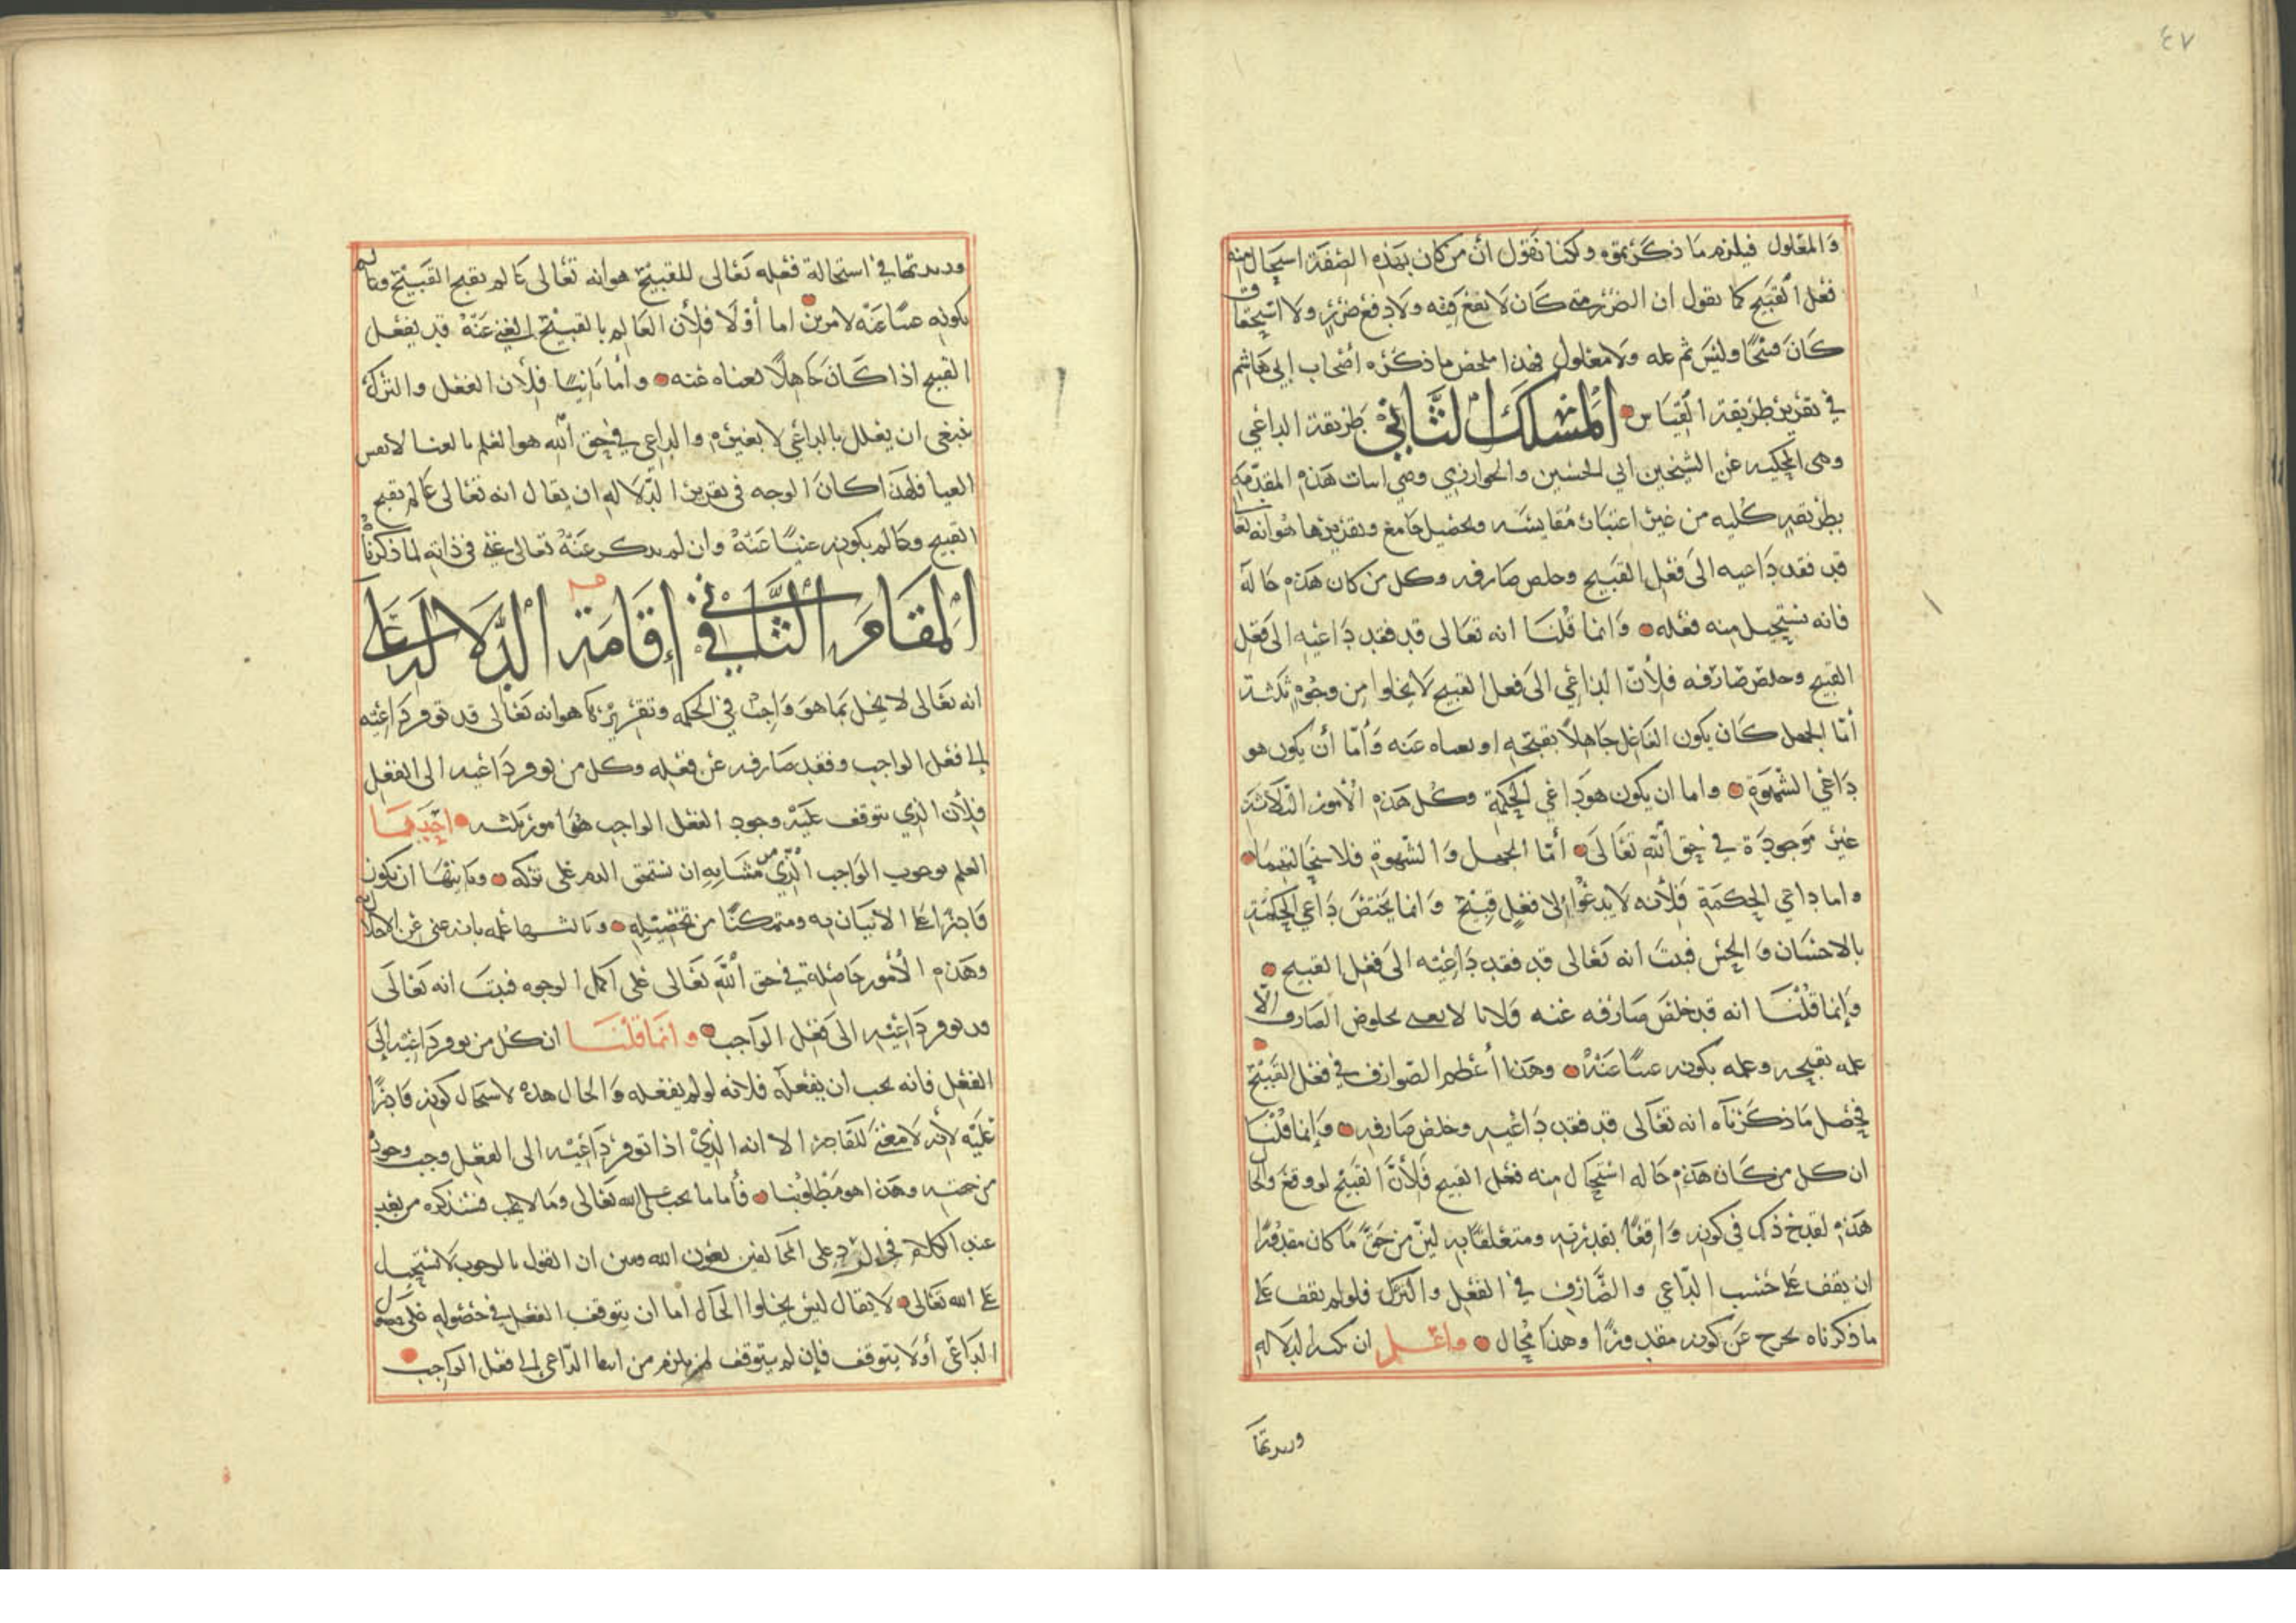 ٤٧
والمعلول فيلزم ما ذكرتموه ولكنا نقول ان من كان بهذه الصفة استحال منه
فعل القبيح كما نقول ان الضرر متى كان لا نفع فيه ولا دفع ضرر ولا استحقاق
كان قبيحا وليس ثم عله ولا معلول فهذا ملخص ما ذكره أصحاب ابي هاشم
في تقرير طريقة القياس المسلك الثاني طريقة الداعي
وهي المحكيه عن الشيخين أبي الحسين والخوارزمي وهي اثبات هذه المقدمه
بطريقه كليه من غير اعتبار مقايسه وتحصيل جامع وتقريرها هو انه تعا
قد فقد داعيه الى فعل القبيح وخلص صارفه وكل من كان هذه حاله
فانه يستحيل منه فعله وانما قلنا انه تعالى قد فقد داعيه الى فعل
القبيح وخلص صارفه فلأن الداعي الى فعل القبيح لا يخلوا من وجوه ثلثة
أما الجهل كان يكون الفاعل جاهلا بقبحه او بغناه عنه وأما أن يكون هو
داعي الشهوة واما ان يكون هو داعي الحكمة وكل هذه الأمور الثلاثة
غير موجودة في حق الله تعالى أما الجهل والشهوة فلاستحالتهما
واما داعي الحكمة فلأنه لا يدعوا إلى فعل قبيح وانما يختص داعي الحكمة
بالاحسان والحسن فثبت انه تعالى قد فقد داعيه الى فعل القبيح
وإنما قلنا انه قد خلص صارفه عنه فلانا لا نعني بخلوص الصارف إلا
علمه بقبحه وعلمه بكونه غنيا عنه وهذا أعظم الصوارف في فعل القبيح
فحصل ما ذكرناه انه تعالى قد فقد داعيه وخلص صارفه وإنما قلنا
ان كل من كان هذه حاله استحال منه فعل القبيح فلأن القبيح لو وقع والحال
هذه لقدح ذلك في كونه واقعا بقدرته ومتعلقا به لان من حق ما كان مقدورا
ان يقف على حسب الداعي والصارف في الفعل والترك فلو لم يقف على
ما ذكرناه لخرج عن كونه مقدورا وهذا محال واعلم ان الدلاله
وزبدتها
وزبدتها في استحالة فعله تعالى للقبيح هو انه تعالى عالم بقبح القبيح وعالم
بكونه غنيا عنه لامرين اما أولا فلأن العالم بالقبيح الغني عنه قد يفعل
القبيح اذا كان جاهلا بغناه عنه وأما ثانيا فلأن الفعل والترك
ينبغي ان يعلل بالداعي لا بغيره والداعي في حق الله هو العلم بالغنا لا نفس
الغنا فلهذا كان الوجه في تقرير الدلاله ان يقال انه تعالى عالم بقبح
القبيح وعالم بكونه غنيا عنه وان لم عنه تعالى غني في ذاته لما ذكرناه
المقام الثاني في إقامة الدلالة على
انه تعالى لا يخل بما هو واجب في الحكمه وتقريره كما هو انه تعالى قد توفر داعيته
إلى فعل الواجب وفقد صارفه عن فعله وكل من توفر داعيه الى الفعل
فلأن الذي يتوقف عليه وجود الفعل الواجب هو أمور ثلثه احدها
العلم بوجوب الواجب الذي من شانه ان نستحق الذم على تركه وثانيها ان يكون
قادرا على الاتيان به ومتمكنا من تحصيله وثالثها علمه بانه غني عن الاخلال
وهذه الأمور حاصلة في حق الله تعالى على أكمل الوجوه فثبت انه تعالى
قد توفر داعيته الى فعل الواجب وانما قلنا ان كل من توفر داعيته إلى
الفعل فانه يجب ان يفعله فلانه لو لم يفعله والحال هذه لاستحال كونه قادرا
عليه لأنه لا معنى للقادر الا انه الذي اذا توفر داعيته الى الفعل وجب وجوده
من جهته وهذا هو مطلوبنا فأما ما يجب على الله تعالى وما لا يجب فسنذكره من بعد
عند الكلام في الرد على المخالفين بعون الله ونبين ان القول بالوجوب لا يستحيل
على الله تعالى لا يقال ليس يخلوا الحال أما ان يتوقف الفعل في حصوله على
الداعي أو لا يتوقف فإن لم يتوقف لم يلزم من الداعي إلى فعل الواجب